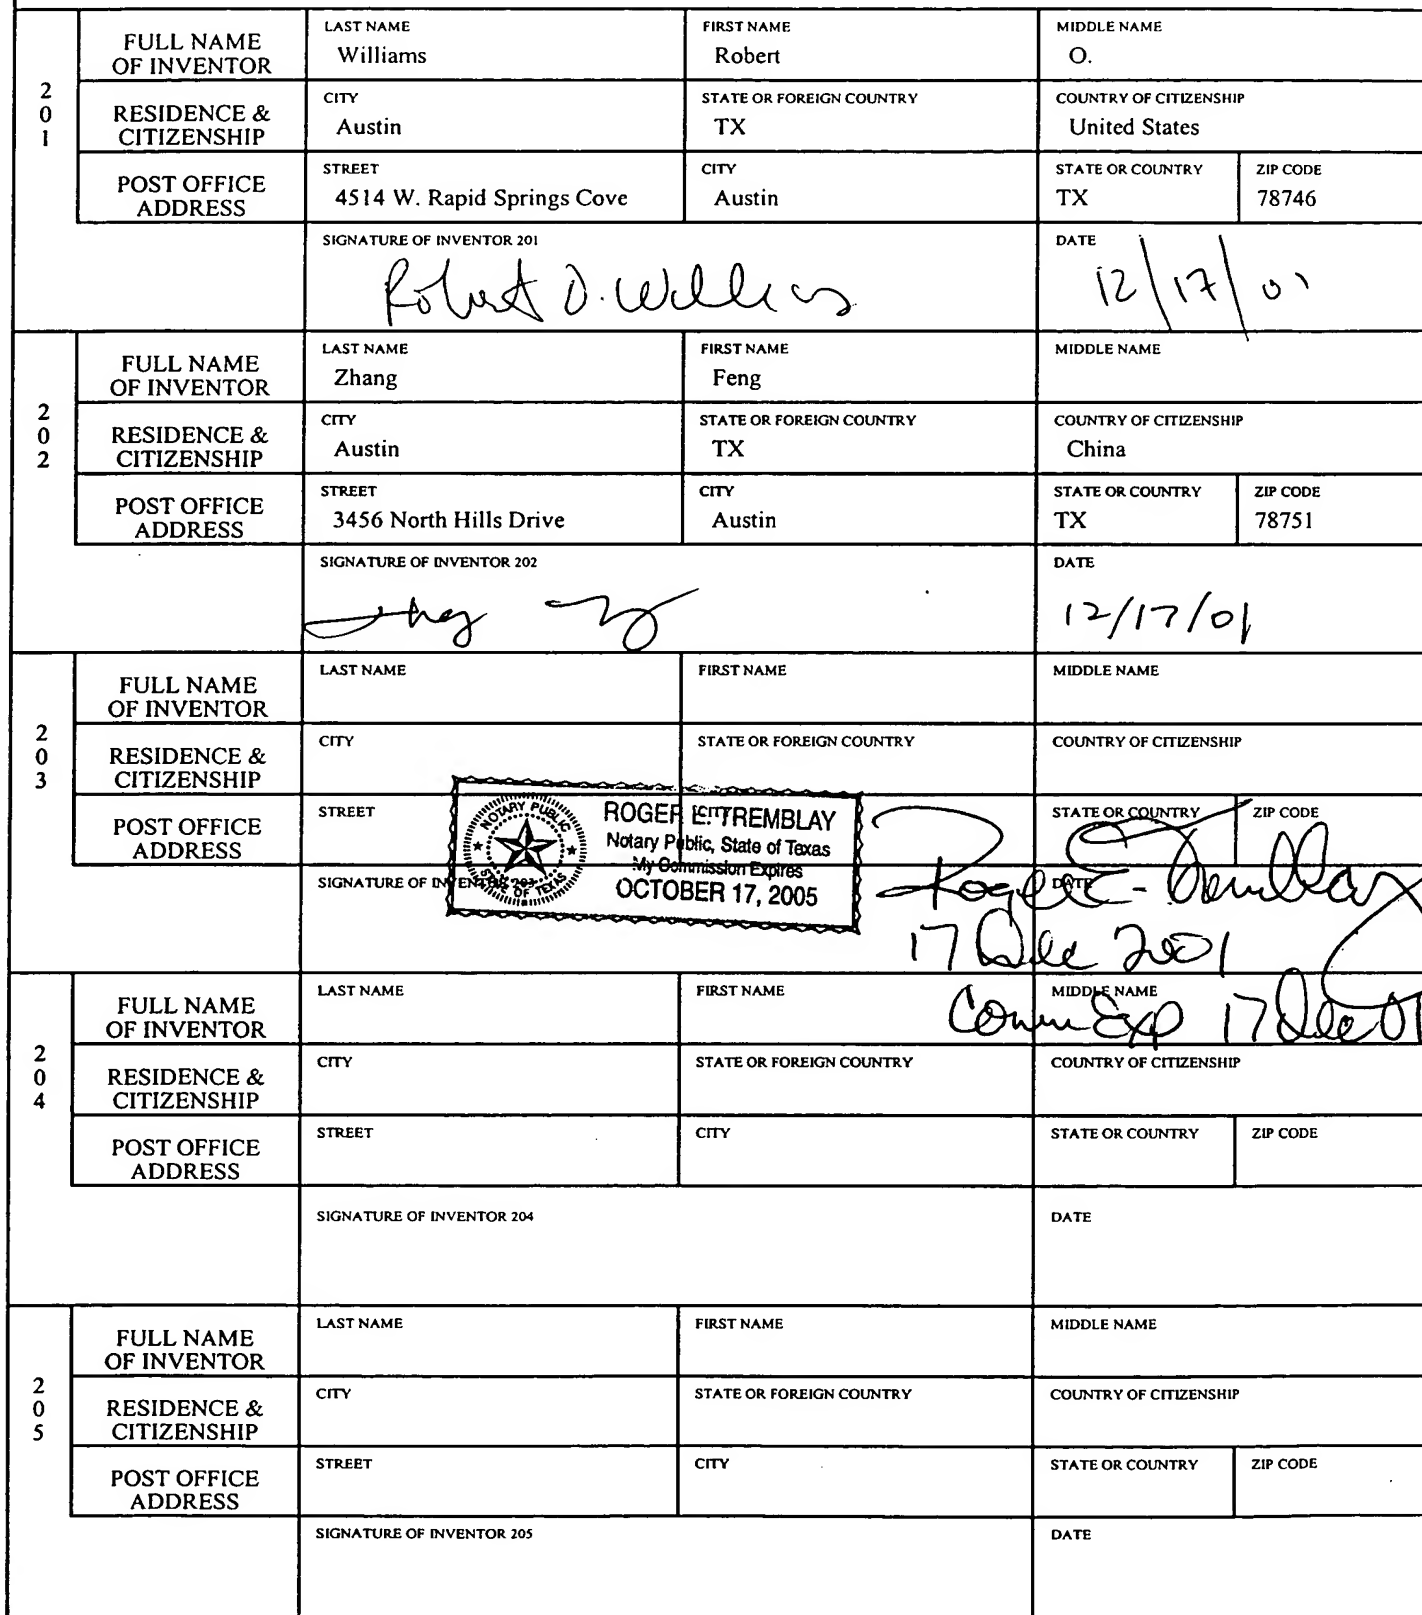 201
FULL NAME OF INVENTOR
LAST NAME
Williams
FIRST NAME
Robert
MIDDLE NAME
O.
RESIDENCE & CITIZENSHIP
CITY
Austin
STATE OR FOREIGN COUNTRY
TX
COUNTRY OF CITIZENSHIP
United States
POST OFFICE ADDRESS
STREET
4514 W. Rapid Springs Cove
CITY
Austin
STATE OR COUNTRY
TX
ZIP CODE
78746
SIGNATURE OF INVENTOR 201
Robert O. Williams
DATE
12/17/01
202
FULL NAME OF INVENTOR
LAST NAME
Zhang
FIRST NAME
Feng
MIDDLE NAME
RESIDENCE & CITIZENSHIP
CITY
Austin
STATE OR FOREIGN COUNTRY
TX
COUNTRY OF CITIZENSHIP
China
POST OFFICE ADDRESS
STREET
3456 North Hills Drive
CITY
Austin
STATE OR COUNTRY
TX
ZIP CODE
78751
SIGNATURE OF INVENTOR 202
DATE
12/17/01
203
FULL NAME OF INVENTOR
LAST NAME
FIRST NAME
MIDDLE NAME
RESIDENCE & CITIZENSHIP
CITY
STATE OR FOREIGN COUNTRY
COUNTRY OF CITIZENSHIP
POST OFFICE ADDRESS
STREET
CITY
STATE OR COUNTRY
ZIP CODE
NOTARY PUBLIC
STATE OF TEXAS
ROGER E. TREMBLAY
Notary Public, State of Texas
My Commission Expires
OCTOBER 17, 2005
SIGNATURE OF INVENTOR 203
DATE
Roger E. Tremblay
17 Dec 2001
Comm Exp 17 Dec 01
204
FULL NAME OF INVENTOR
LAST NAME
FIRST NAME
MIDDLE NAME
RESIDENCE & CITIZENSHIP
CITY
STATE OR FOREIGN COUNTRY
COUNTRY OF CITIZENSHIP
POST OFFICE ADDRESS
STREET
CITY
STATE OR COUNTRY
ZIP CODE
SIGNATURE OF INVENTOR 204
DATE
205
FULL NAME OF INVENTOR
LAST NAME
FIRST NAME
MIDDLE NAME
RESIDENCE & CITIZENSHIP
CITY
STATE OR FOREIGN COUNTRY
COUNTRY OF CITIZENSHIP
POST OFFICE ADDRESS
STREET
CITY
STATE OR COUNTRY
ZIP CODE
SIGNATURE OF INVENTOR 205
DATE